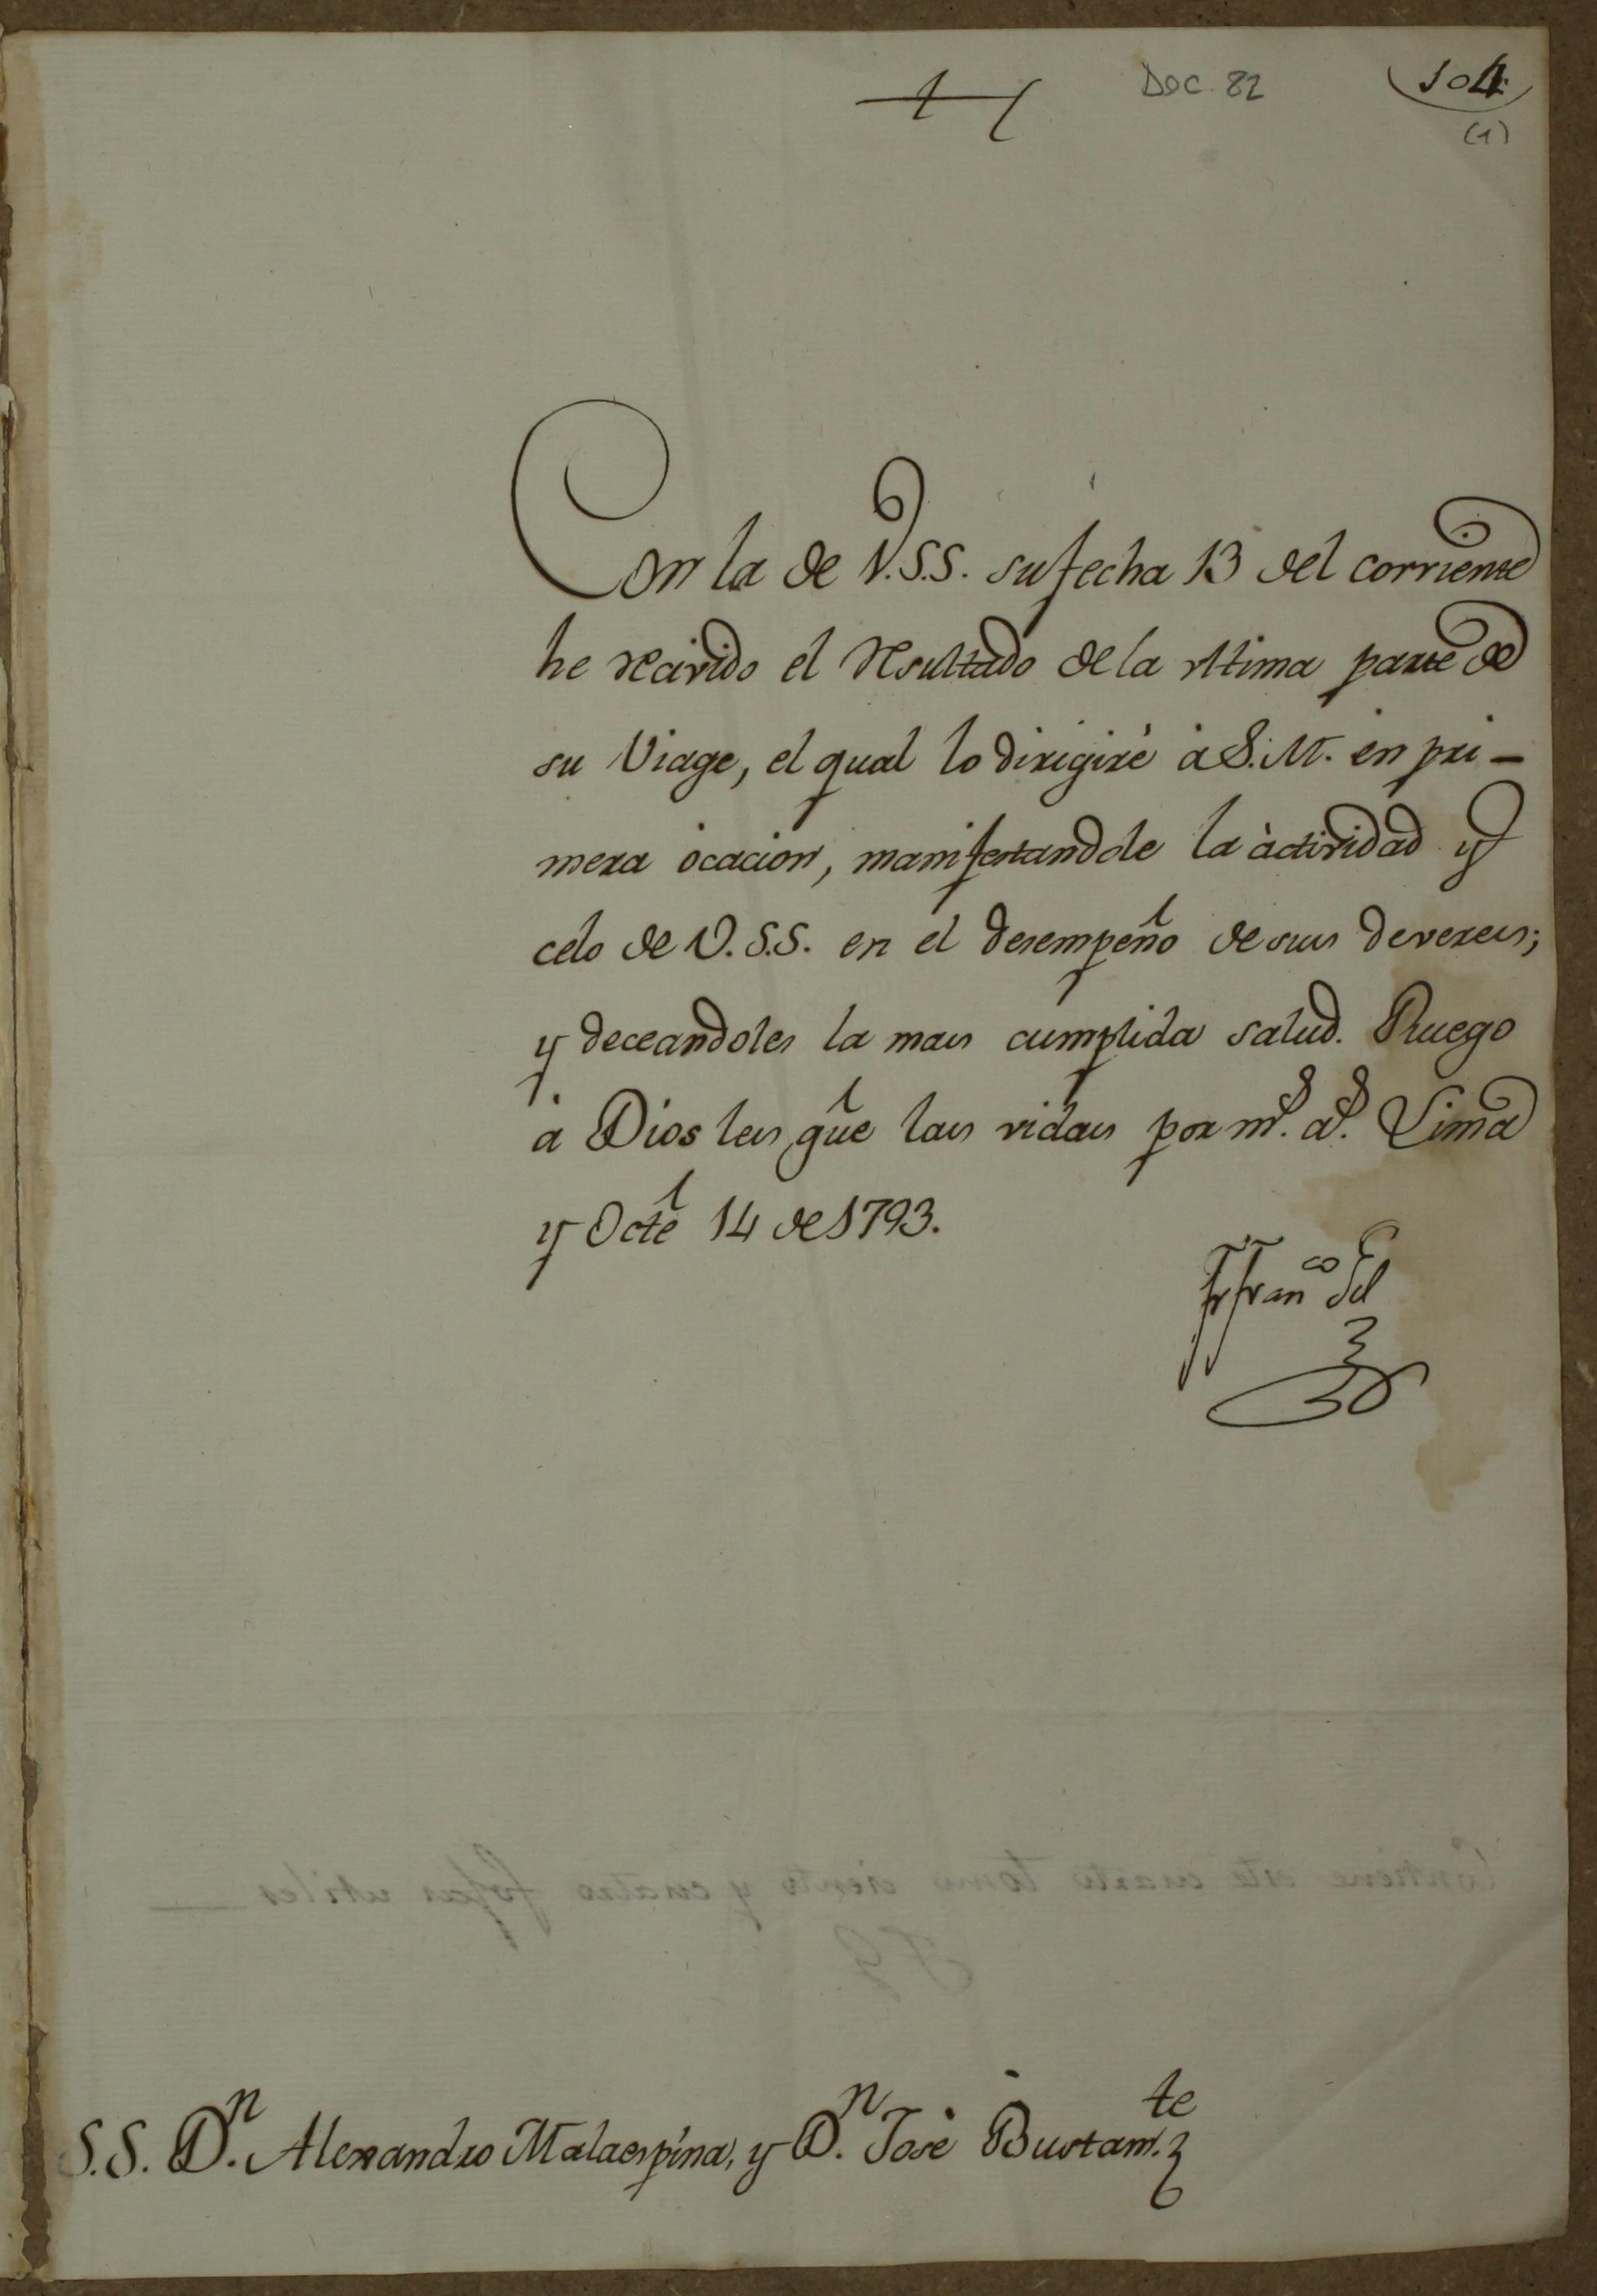 Doc. 82
104
(1)
Con la de V.S.S. su fecha 13 del corriente
he recivido el Resultado de la vltima parte de
su Viage, el qual lo dirigirè à S.M. en pri-
mera ocacion, manifestandole la àctividad y
celo de V.S.S. en el desempeño de sus deveres;
y deceandoles la mas cumplida salud. Ruego
à Dios les gue las vidas por ms. as. Lima
y Octe 14 de 1793.
Fr Franco Gil
Contiene este cuarto tomo ciento y cuatro fojas utiles
S.S. Dn. Alexandro Malaespina, y Dn. Josè Bustamte.